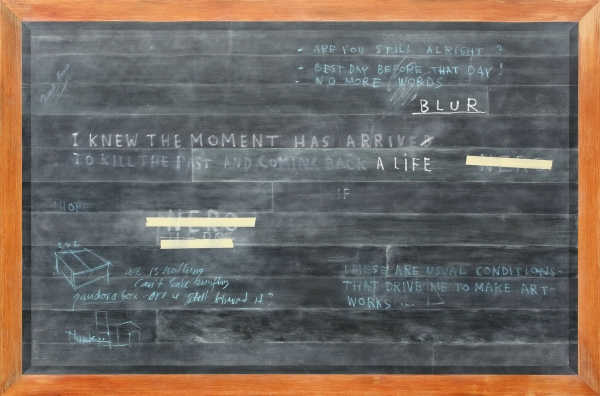 - ARE YOU STILL ALRIGHT ?
- BEST DAY BEFORE THAT DAY !
- NO MORE WORDS
BLUR
I KNEW THE MOMENT HAS ARRIVED
TO KILL THE PAST AND COMING BACK A LIFE
NERO
IF
HOPE
NERO
we is nothing
can't take
pandora box - are u still blound it?
THESE ARE USUAL CONDITIONS -
THAT DRIVE ME TO MAKE ART-
WORKS ...
Think..